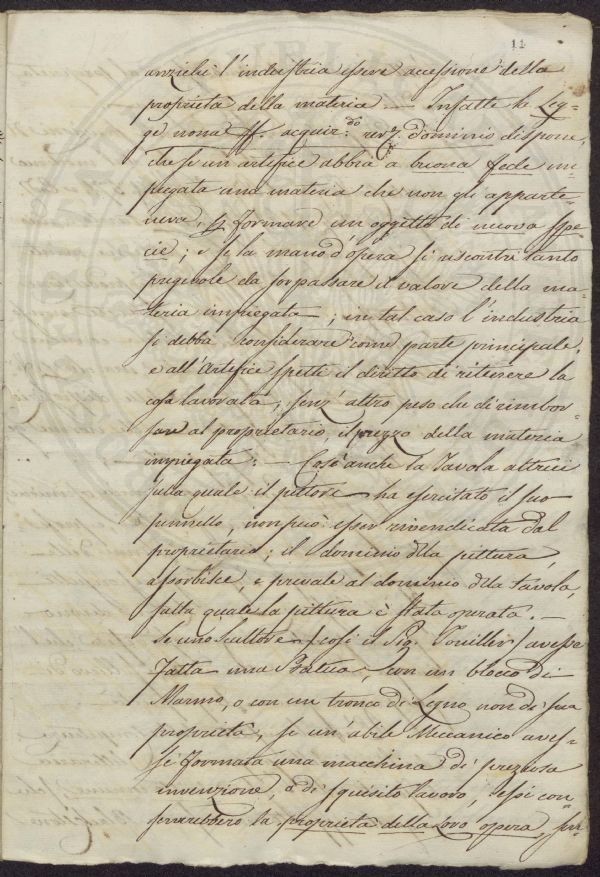 11
anzichè l'industria essere accessione della
proprietà della materia — Infatti la Leg=
ge nona ff. acquir.do rer. dominio dispone,
che se un artefice abbia a buona fede im=
piegata una materia che non gli apparte=
neva, formare un oggetto di nuova spe=
cie; e se la mano d'opera si riscontri tanto
pregievole da sorpassare il valore della ma=
teria impiegata; in tal caso l'industria
si debba considerare come parte principale,
e all'Artefice spetti il diritto di ritenere la
cosa lavorata, senz'altro peso che di rimbor=
sare al proprietario, il prezzo della materia
impiegata: — Così anche la Tavola altrui
sulla quale il pittore ha esercitato il suo
pennello, non può esser rivendicata dal
proprietario; il dominio della pittura,
assorbisce, e prevale al dominio della tavola,
sulla quale la pittura è stata operata. —
Se uno Scultore (così il Sig. Pouillet) avesse
fatta una Statua, con un blocco di
Marmo, o con un tronco di Legno non di sua
proprietà, se un'abile Meccanico aves=
se formata una macchina di preziosa
invenzione, o di squisito lavoro, essi con=
serverebbero la proprietà della Loro opera,